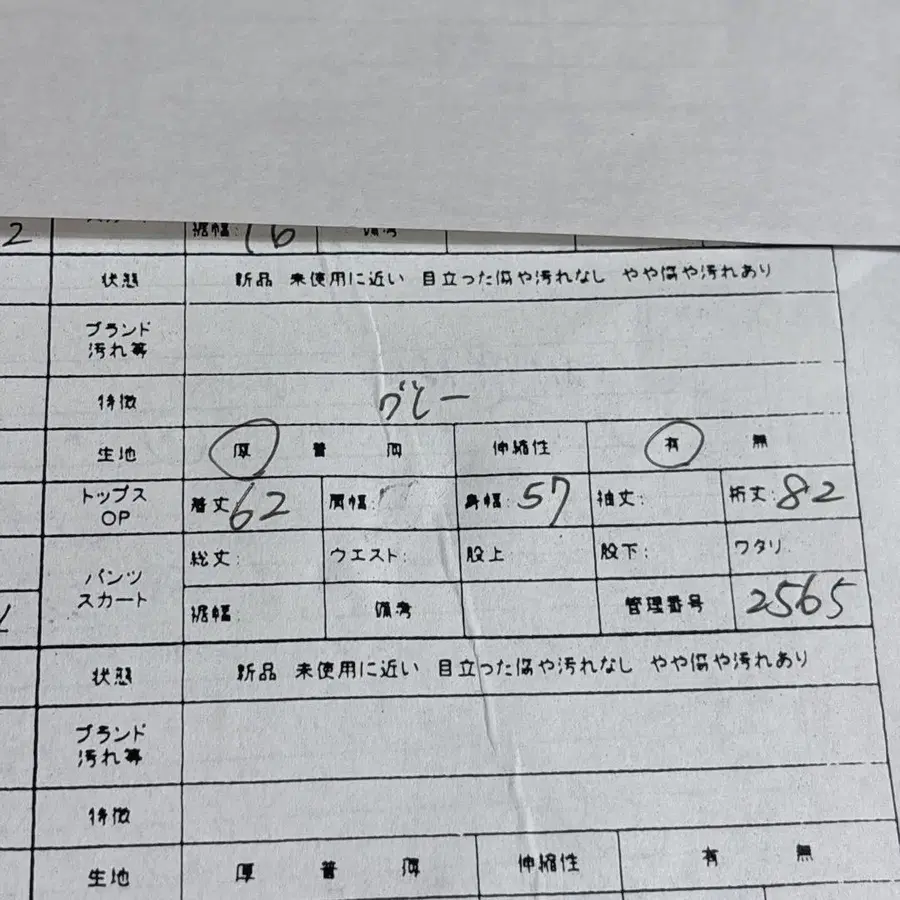 2 裾幅: 16 備考
状態 新品 未使用に近い 目立った傷や汚れなし やや傷や汚れあり
ブランド
汚れ等
特徴 グレー
生地 厚 普 薄 伸縮性 有 無
トップス
OP
着丈: 62 肩幅: 身幅: 57 袖丈: 裄丈: 82
パンツ
スカート
総丈: ウエスト: 股上: 股下: ワタリ
裾幅: 備考 管理番号 2565
状態 新品 未使用に近い 目立った傷や汚れなし やや傷や汚れあり
ブランド
汚れ等
特徴
生地 厚 普 薄 伸縮性 有 無